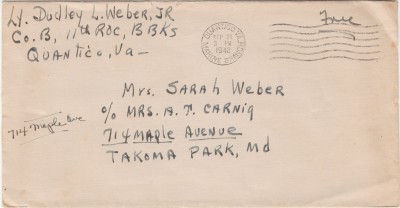 Lt. Dudley L. Weber, JR
Co. B, 11th ROC, BBKS
QUANTICO, Va—
Free
1942
Mrs. SARAH Weber
c/o MRS. A.T. CARNIG
714 MAPLE AVENUE
TAKOMA PARK, Md
714 Maple Ave